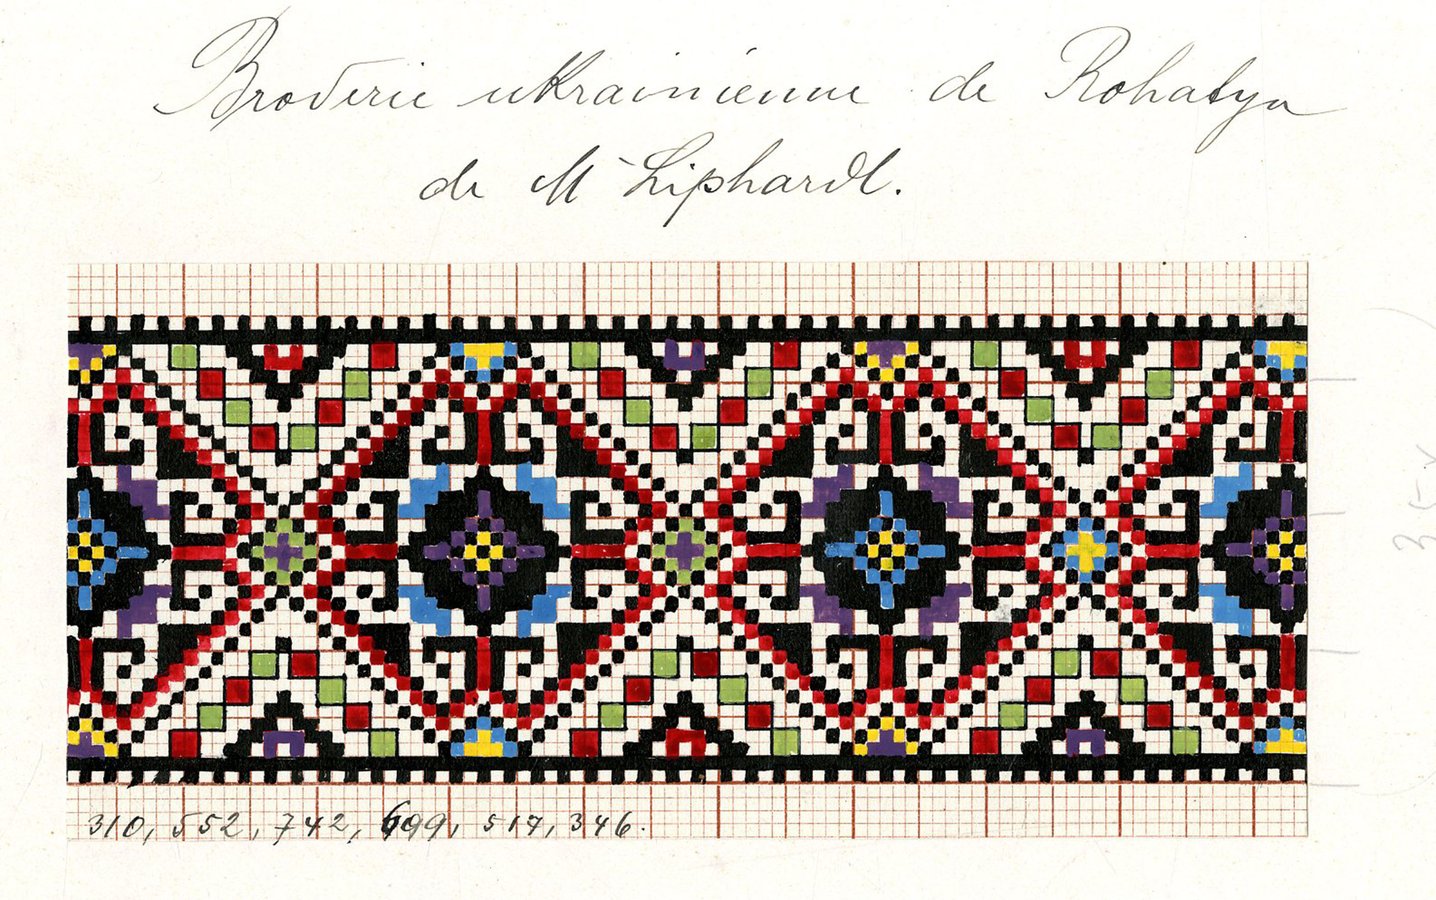 Broderie ukrainienne de Rohatyn
de M Liphardt.
310, 552, 742, 699, 517, 346.
35